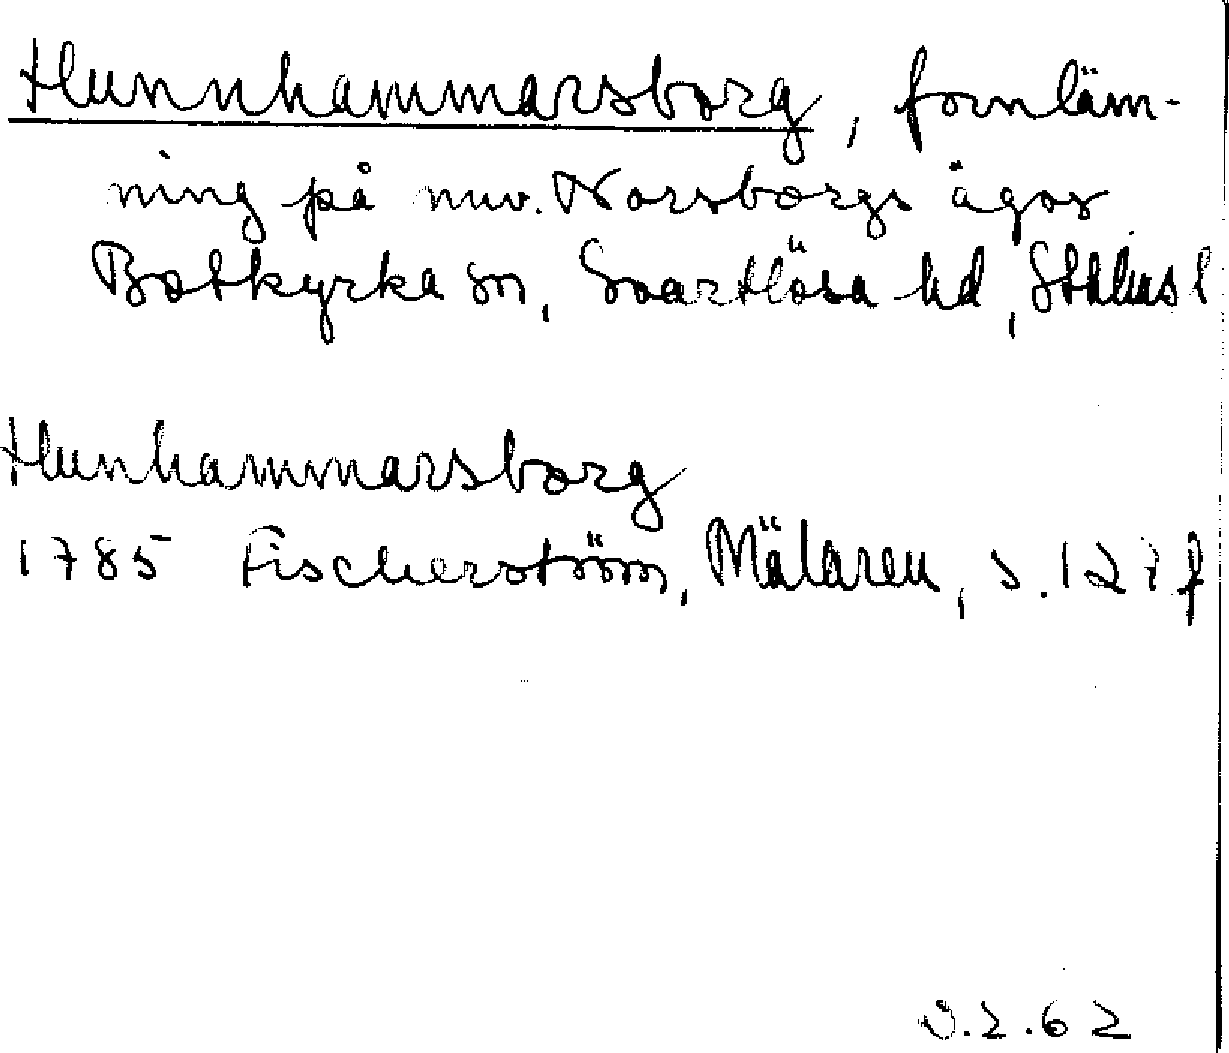 Hunnhammarsborg, fornläm-
ning på nuv. Norsborgs ägor
Botkyrka sn, Svartlösa hd, Sthlms l
Hunhammarsborg
1785 Fischerström, Mälaren, s. 127 f
9.2.62